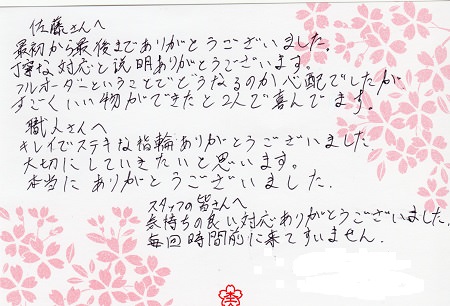 佐藤さんへ
最初から最後までありがとうございました。
丁寧な対応と説明ありがとうございます。
フルオーダーということでどうなるのか心配でしたが、
すごくいい物ができたと2人で喜んでます。
職人さんへ
キレイでステキな指輪ありがとうございました
大切にしていきたいと思います。
本当にありがとうございました.
スタッフの皆さんへ
気持ちの良い対応ありがとうございました。
毎回時間前に来てすいません.